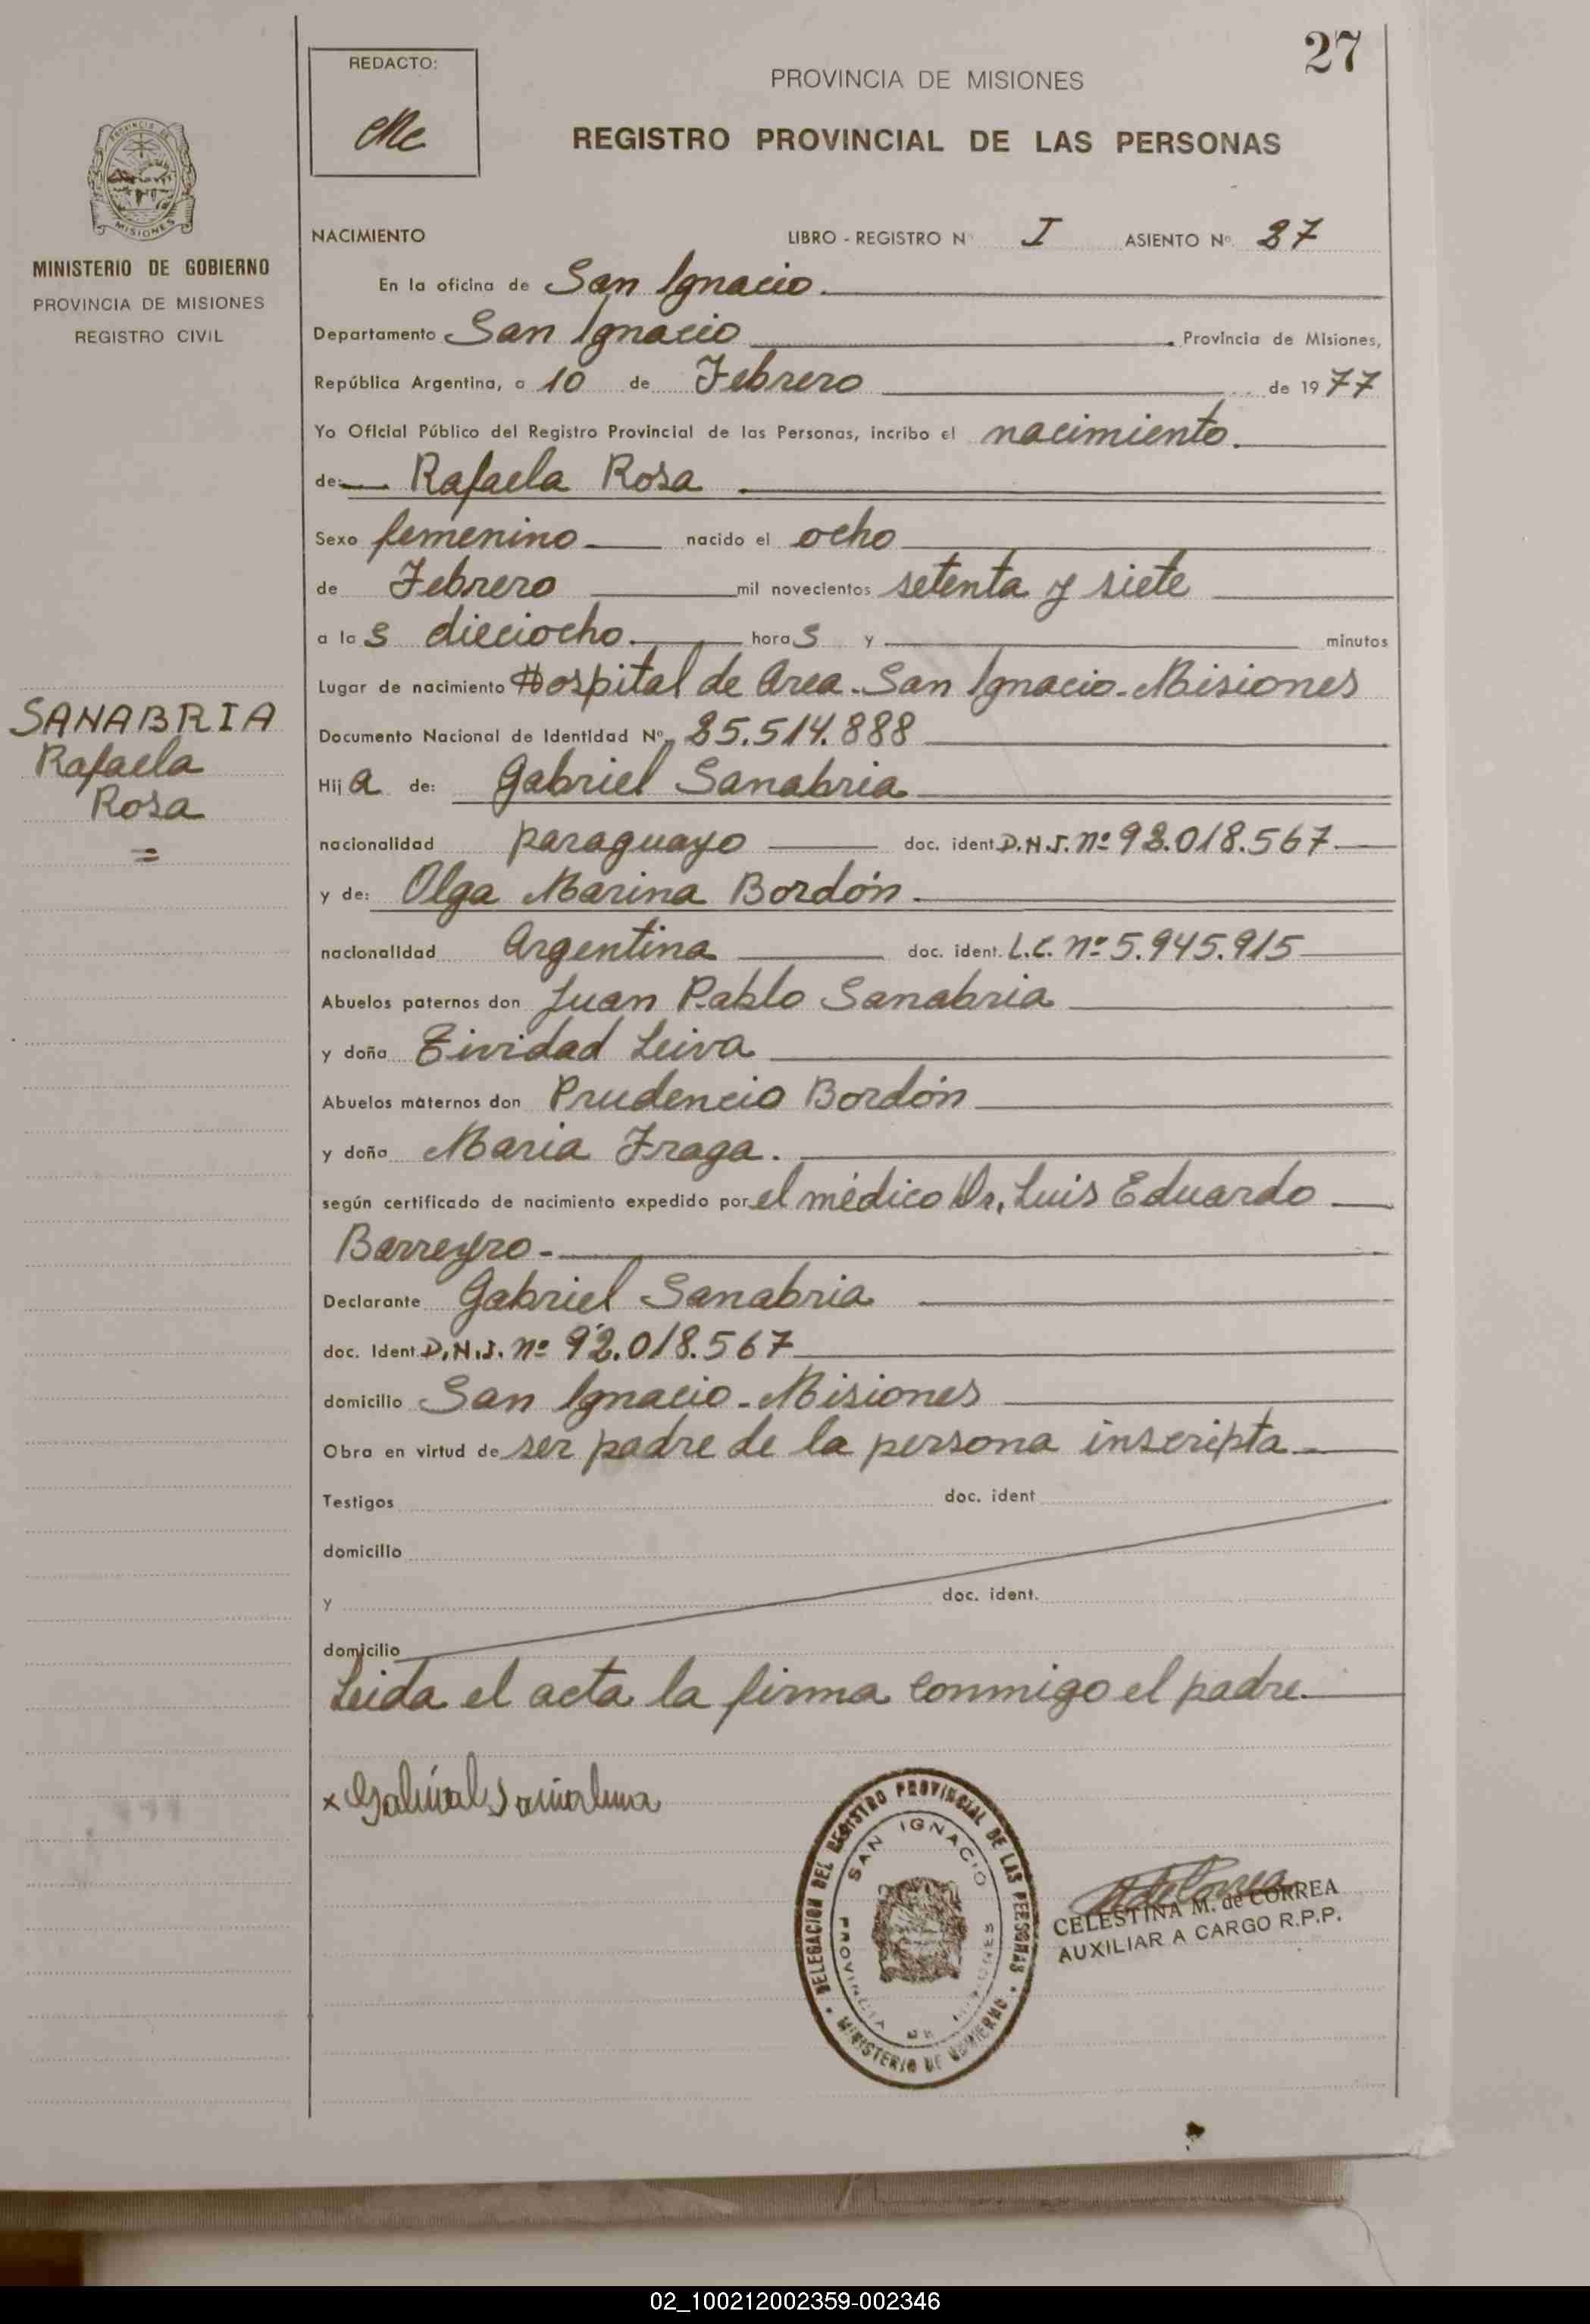 27
REDACTO:
PROVINCIA DE MISIONES
REGISTRO PROVINCIAL DE LAS PERSONAS
PROVINCIA DE MISIONES
MINISTERIO DE GOBIERNO
PROVINCIA DE MISIONES
REGISTRO CIVIL
SANABRIA
Rafaela
Rosa
=
NACIMIENTO LIBRO - REGISTRO Nº I ASIENTO Nº 27
En la oficina de San Ignacio.
Departamento San Ignacio. Provincia de Misiones,
República Argentina, a 10 de Febrero de 1977
Yo Oficial Público del Registro Provincial de las Personas, incribo el nacimiento.
de: Rafaela Rosa
Sexo femenino nacido el ocho
de Febrero mil novecientos setenta y siete
a las dieciocho. horas y minutos
Lugar de nacimiento Hospital de Area. San Ignacio. Misiones
Documento Nacional de Identidad Nº 25.514.888
Hija de: Gabriel Sanabria
nacionalidad paraguayo doc. ident. D.N.I. nº 92.018.567
y de: Olga Marina Bordón.
nacionalidad Argentina doc. ident. L.C. nº 5.945.915
Abuelos paternos don Juan Pablo Sanabria
y doña Leiva
Abuelos maternos don Prudencio Bordón
y doña Maria Fraga.
según certificado de nacimiento expedido por el médico Dr. Luis Eduardo
Barreyro-
Declarante Gabriel Sanabria
doc. Ident D.N.I. nº 92.018.567
domicilio San Ignacio-Misiones
Obra en virtud de ser padre de la persona inscripta.
Testigos doc. ident
domicilio
y doc. ident.
domicilio
Leida el acta la firma conmigo el padre.
x Gabriel Sanabria
DELEGACION DEL REGISTRO PROVINCIAL DE LAS PERSONAS
SAN IGNACIO
PROVINCIA DE MISIONES
MINISTERIO DE GOBIERNO
CELESTINA M. de CORREA
AUXILIAR A CARGO R.P.P.
02_100212002359-002346